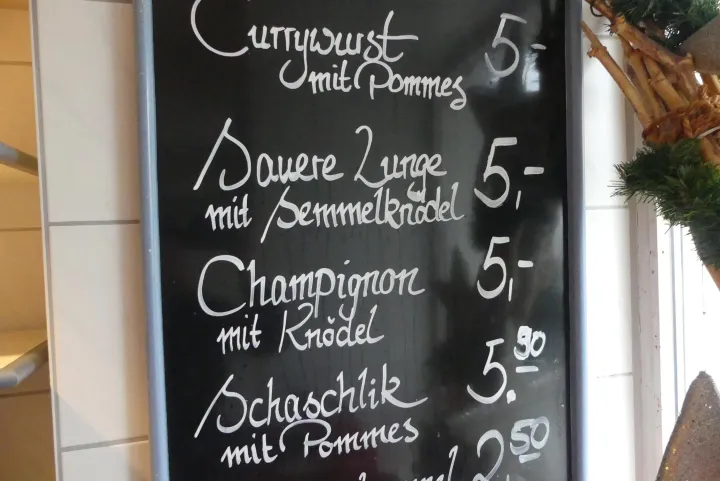 Currywurst 5,-
mit Pommes
Sauere Lunge 5,-
mit Semmelknödel
Champignon 5,-
mit Knödel
Schaschlik 5.50
mit Pommes
2,50